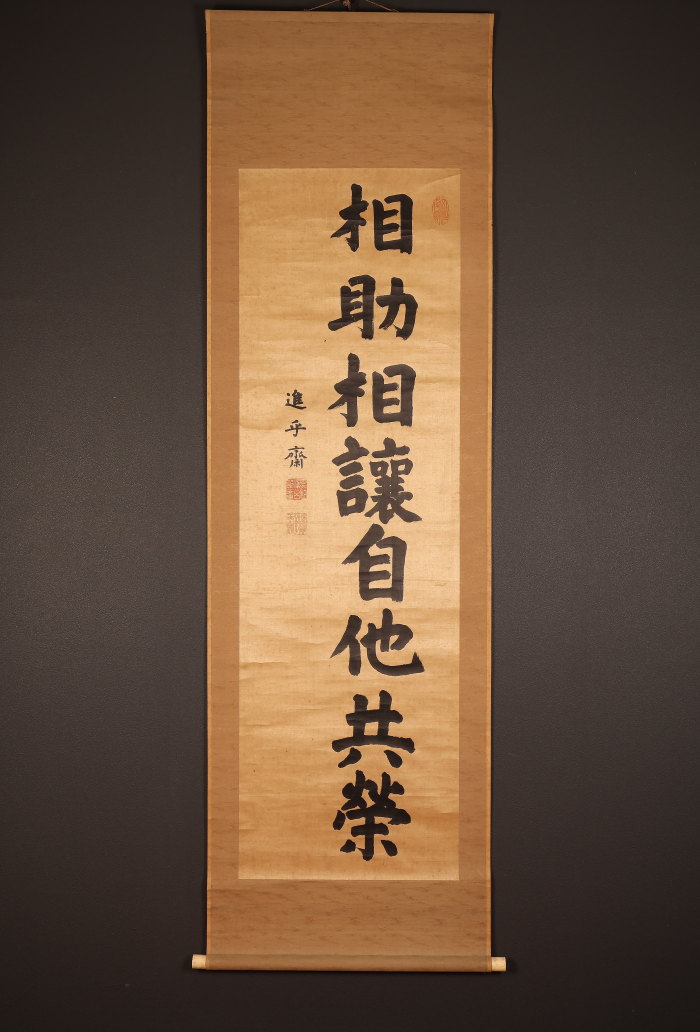 相助相讓自他共榮
進乎齋